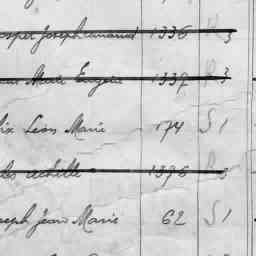 Joseph Emmanuel 1336 R 3
Marie Eugène 1337 R 3
lix Léon Marie 174 S 1
les Achille 1376 R 3
seph Jean Marie 62 S 1